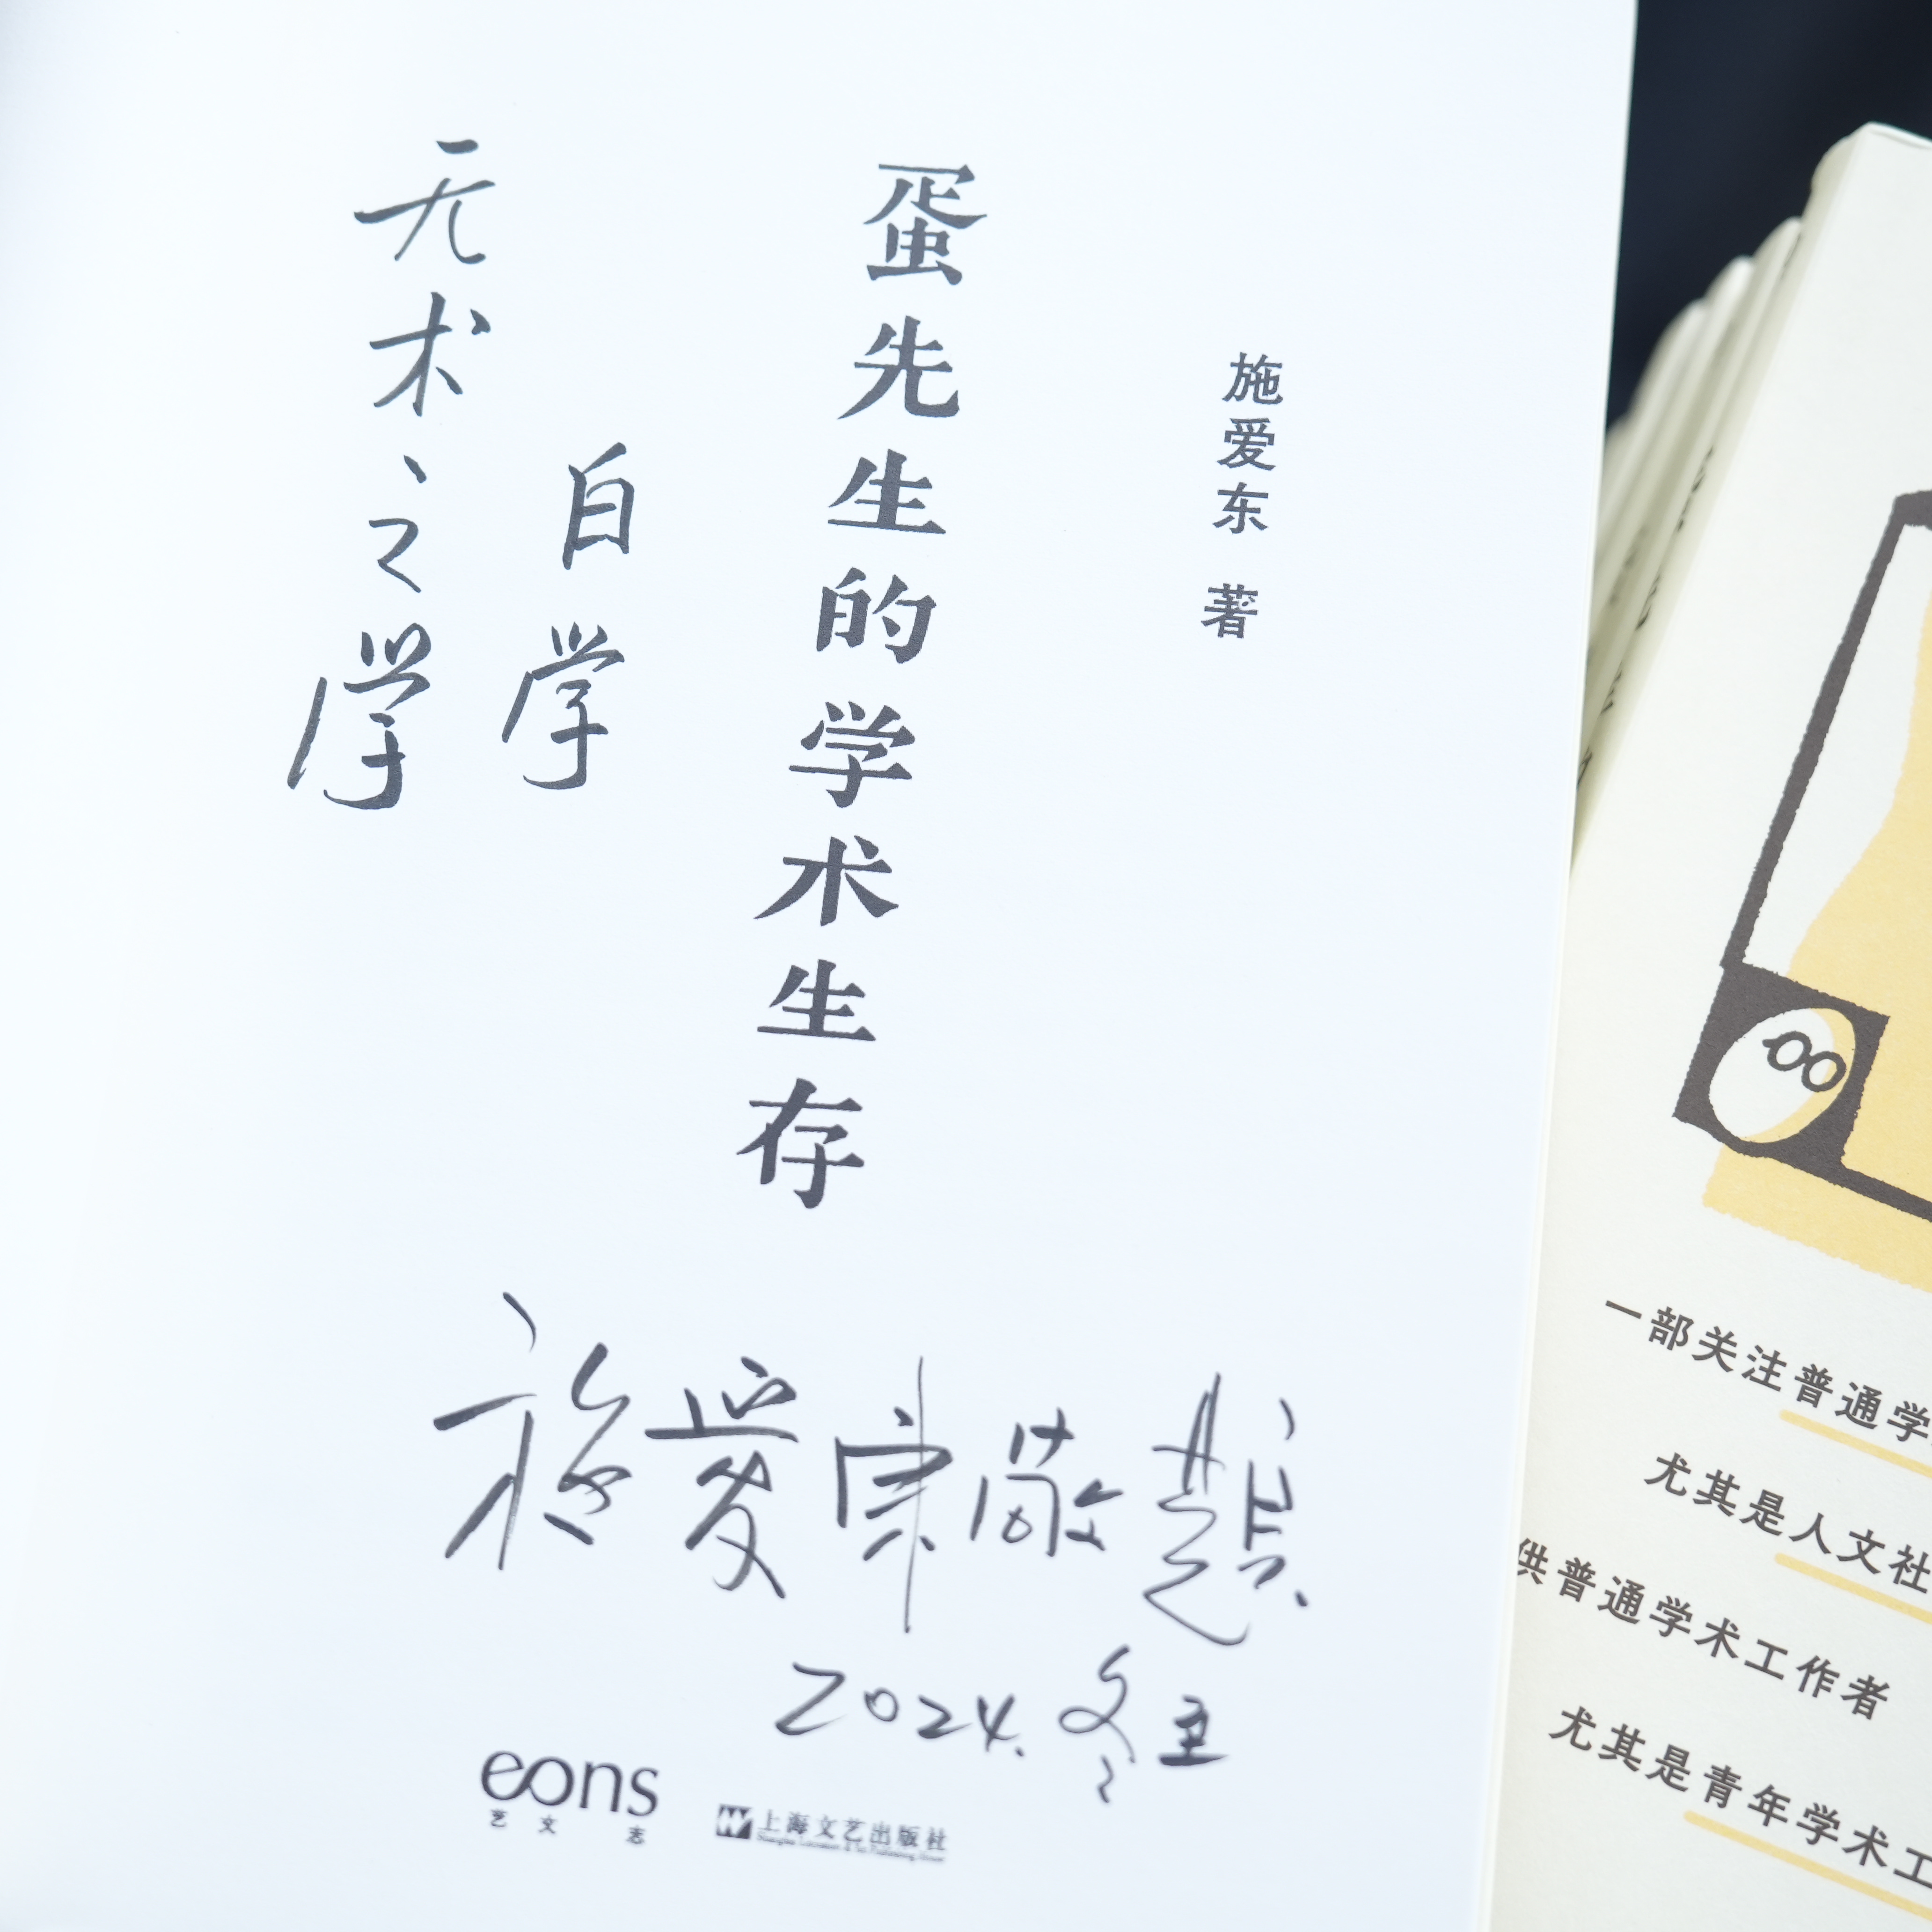 施爱东 著
蛋先生的学术生存
白学
无术之学
施爱東敬题
2024.冬至
eons
艺文志
上海文艺出版社
一部关注普通学
尤其是人文社
供普通学术工作者
尤其是青年学术工